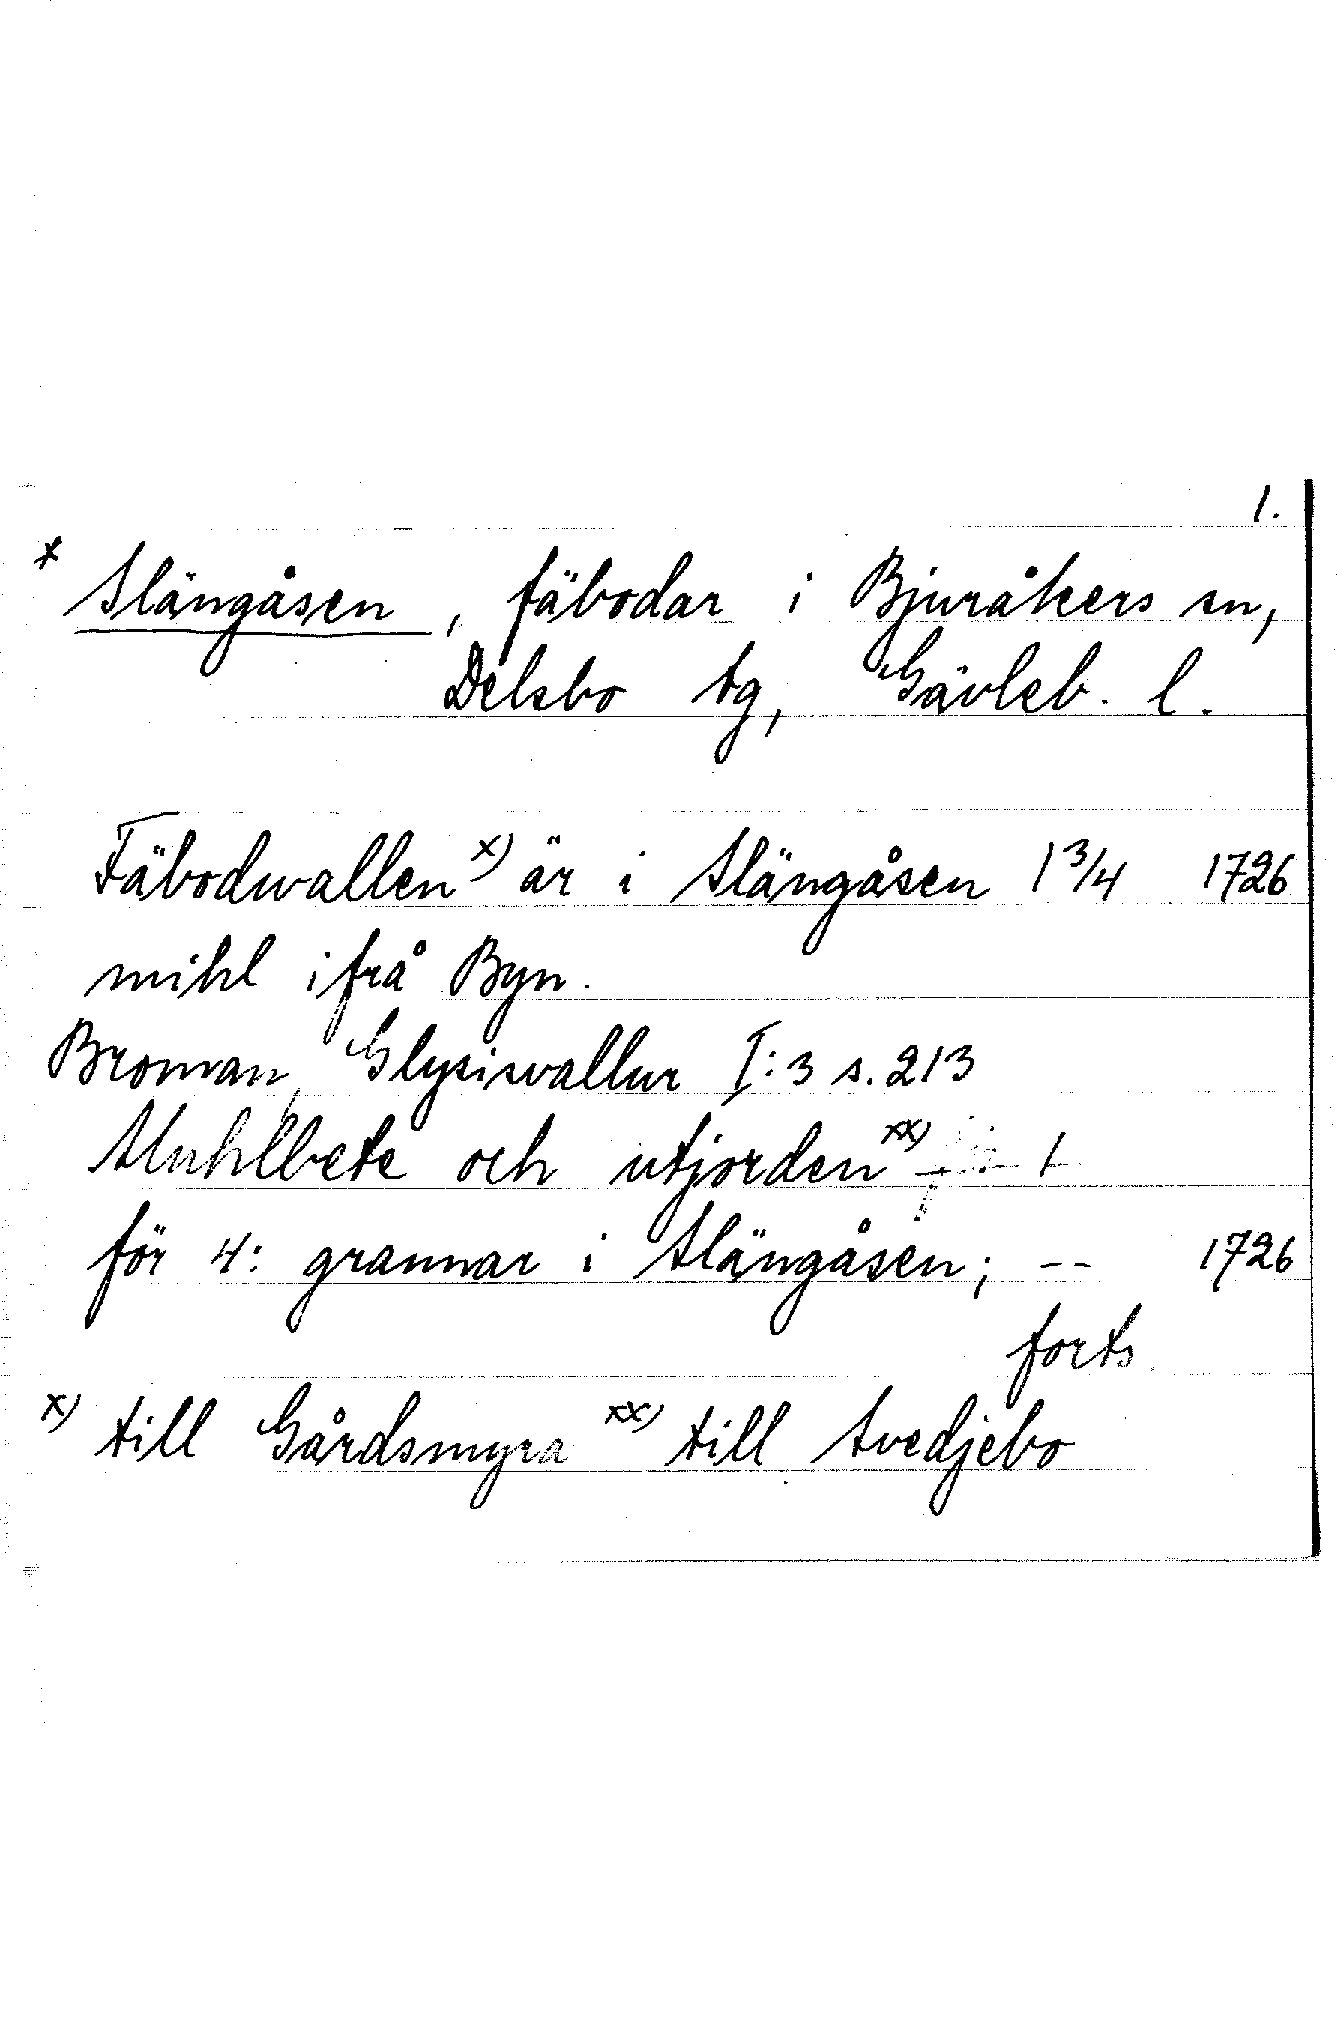 1.
x Slängåsen, fäbodar i Bjuråkers sn,
Delsbo tg, Gävleb. l.
Fäbodwallen x) är i Slängåsen 1 3/4 1726
mihl ifrå Byn.
Broman, Glysisvallur I:3 s. 213
Muhlbete och utjorden xx)
för 4: grannar i Slängåsen; -- 1726
forts.
x) till Gårdsmyra xx) till Svedjebo